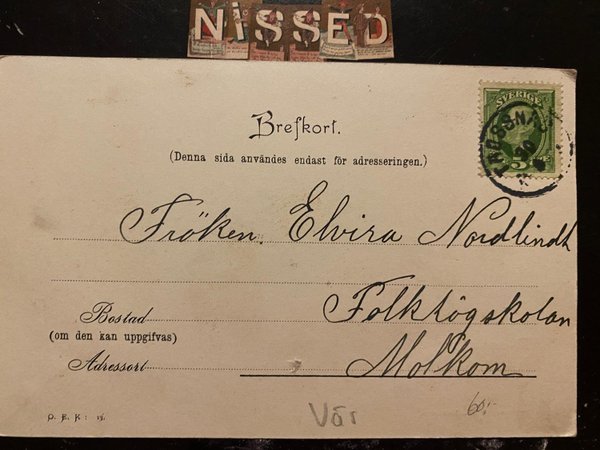 NISSED
SVERIGE
TROSSNÄS
5
Brefkort.
(Denna sida användes endast för adresseringen.)
Fröken. Elvira Nordlindh
Bostad
(om den kan uppgifvas)
Folkhögskolan
Adressort
Molkom
O. E. K :
Vår
60:-